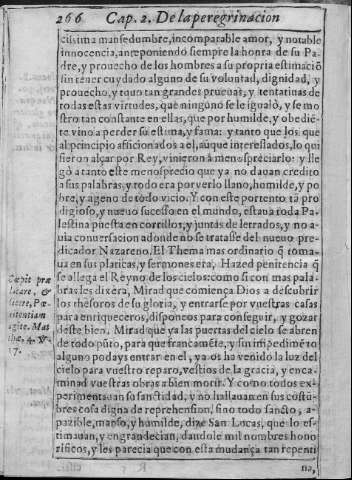 266 Cap. 2. De la peregrinacion
cissima mansedumbre, incomparable amor, y notable
innocencia, anteponiendo siempre la honra de su Pa-
dre, y prouecho de los hombres a su propria estimaciõ
sin tener cuydado alguno de su voluntad, dignidad, y
prouecho, y tuuo tan grandes prueuas, y tentatinas de
todas estas virtudes, que ninguno se le igualò, y se mo
stro tan constante en ellas, que por humilde, y obediẽ-
te vino a perder su estima, y fama: y tanto que los que
al principio afficionados a el, aũque interessados, lo qui
sieron alçar por Rey, vinieron à menospreciarlo: y lle
gò a tanto este menosprecio que ya no dauan credito
a sus palabras, y todo era por verlo llano, humilde, y po
bre, y ageno de todo vicio. Y con este portento tã pro
digioso, y nueuo sucesso en el mundo, estaua toda Pa-
lestina puesta en corrillos, y juntas de letrados, y no a-
uia conuersacion adonde no se tratasse del nueuo pre-
dicador Nazareno. El Thema mas ordinario q̃ toma-
ua en sus platicas, y sermones era, Hazed penitencia q̃
se allega el Reyno de los cielos: como si con mas pala-
bras les dixera, Mirad que comiença Dios a descubrir
los thesoros de su gloria, y entrarse por vuestras casas
para enriqueceros, disponeos para conseguir, y gozar
deste bien. Mirad que ya las puertas del cielo se abren
de todo pũto, para que francamẽte, y sin impedimẽto
alguno podays entrar en el, ya os ha venido la luz del
cielo para vuestro reparo, vestios de la gracia, y enca-
minad vuestras obras a bien morir. Y como todos ex-
perimentauan su sanctidad, y no hallauan en sus costũ-
bres cosa digna de reprehension, sino todo sancto, a-
pazible, manso, y humilde, dize San Lucas, que lo es-
timauan, y engrandecian, dandole mil nombres hono
rificos, y les parecia que con esta mudança tan repenti
na,
Cœpit præ
dicare, &
dicere, Pœ-
nitentiam
agite. Mat
thæ. 4. v.
17.